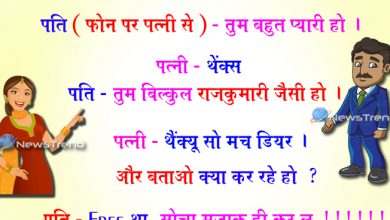 पति ( फोन पर पत्नी से ) - तुम बहुत प्यारी हो ।
पत्नी - थेंक्स
पति - तुम बिल्कुल राजकुमारी जैसी हो ।
NewsTrend
NewsTrend
पत्नी - थैंक्यू सो मच डियर ।
और बताओ क्या कर रहे हो ?
पति - Free था, सोचा मजाक ही कर लूं !!!!!!